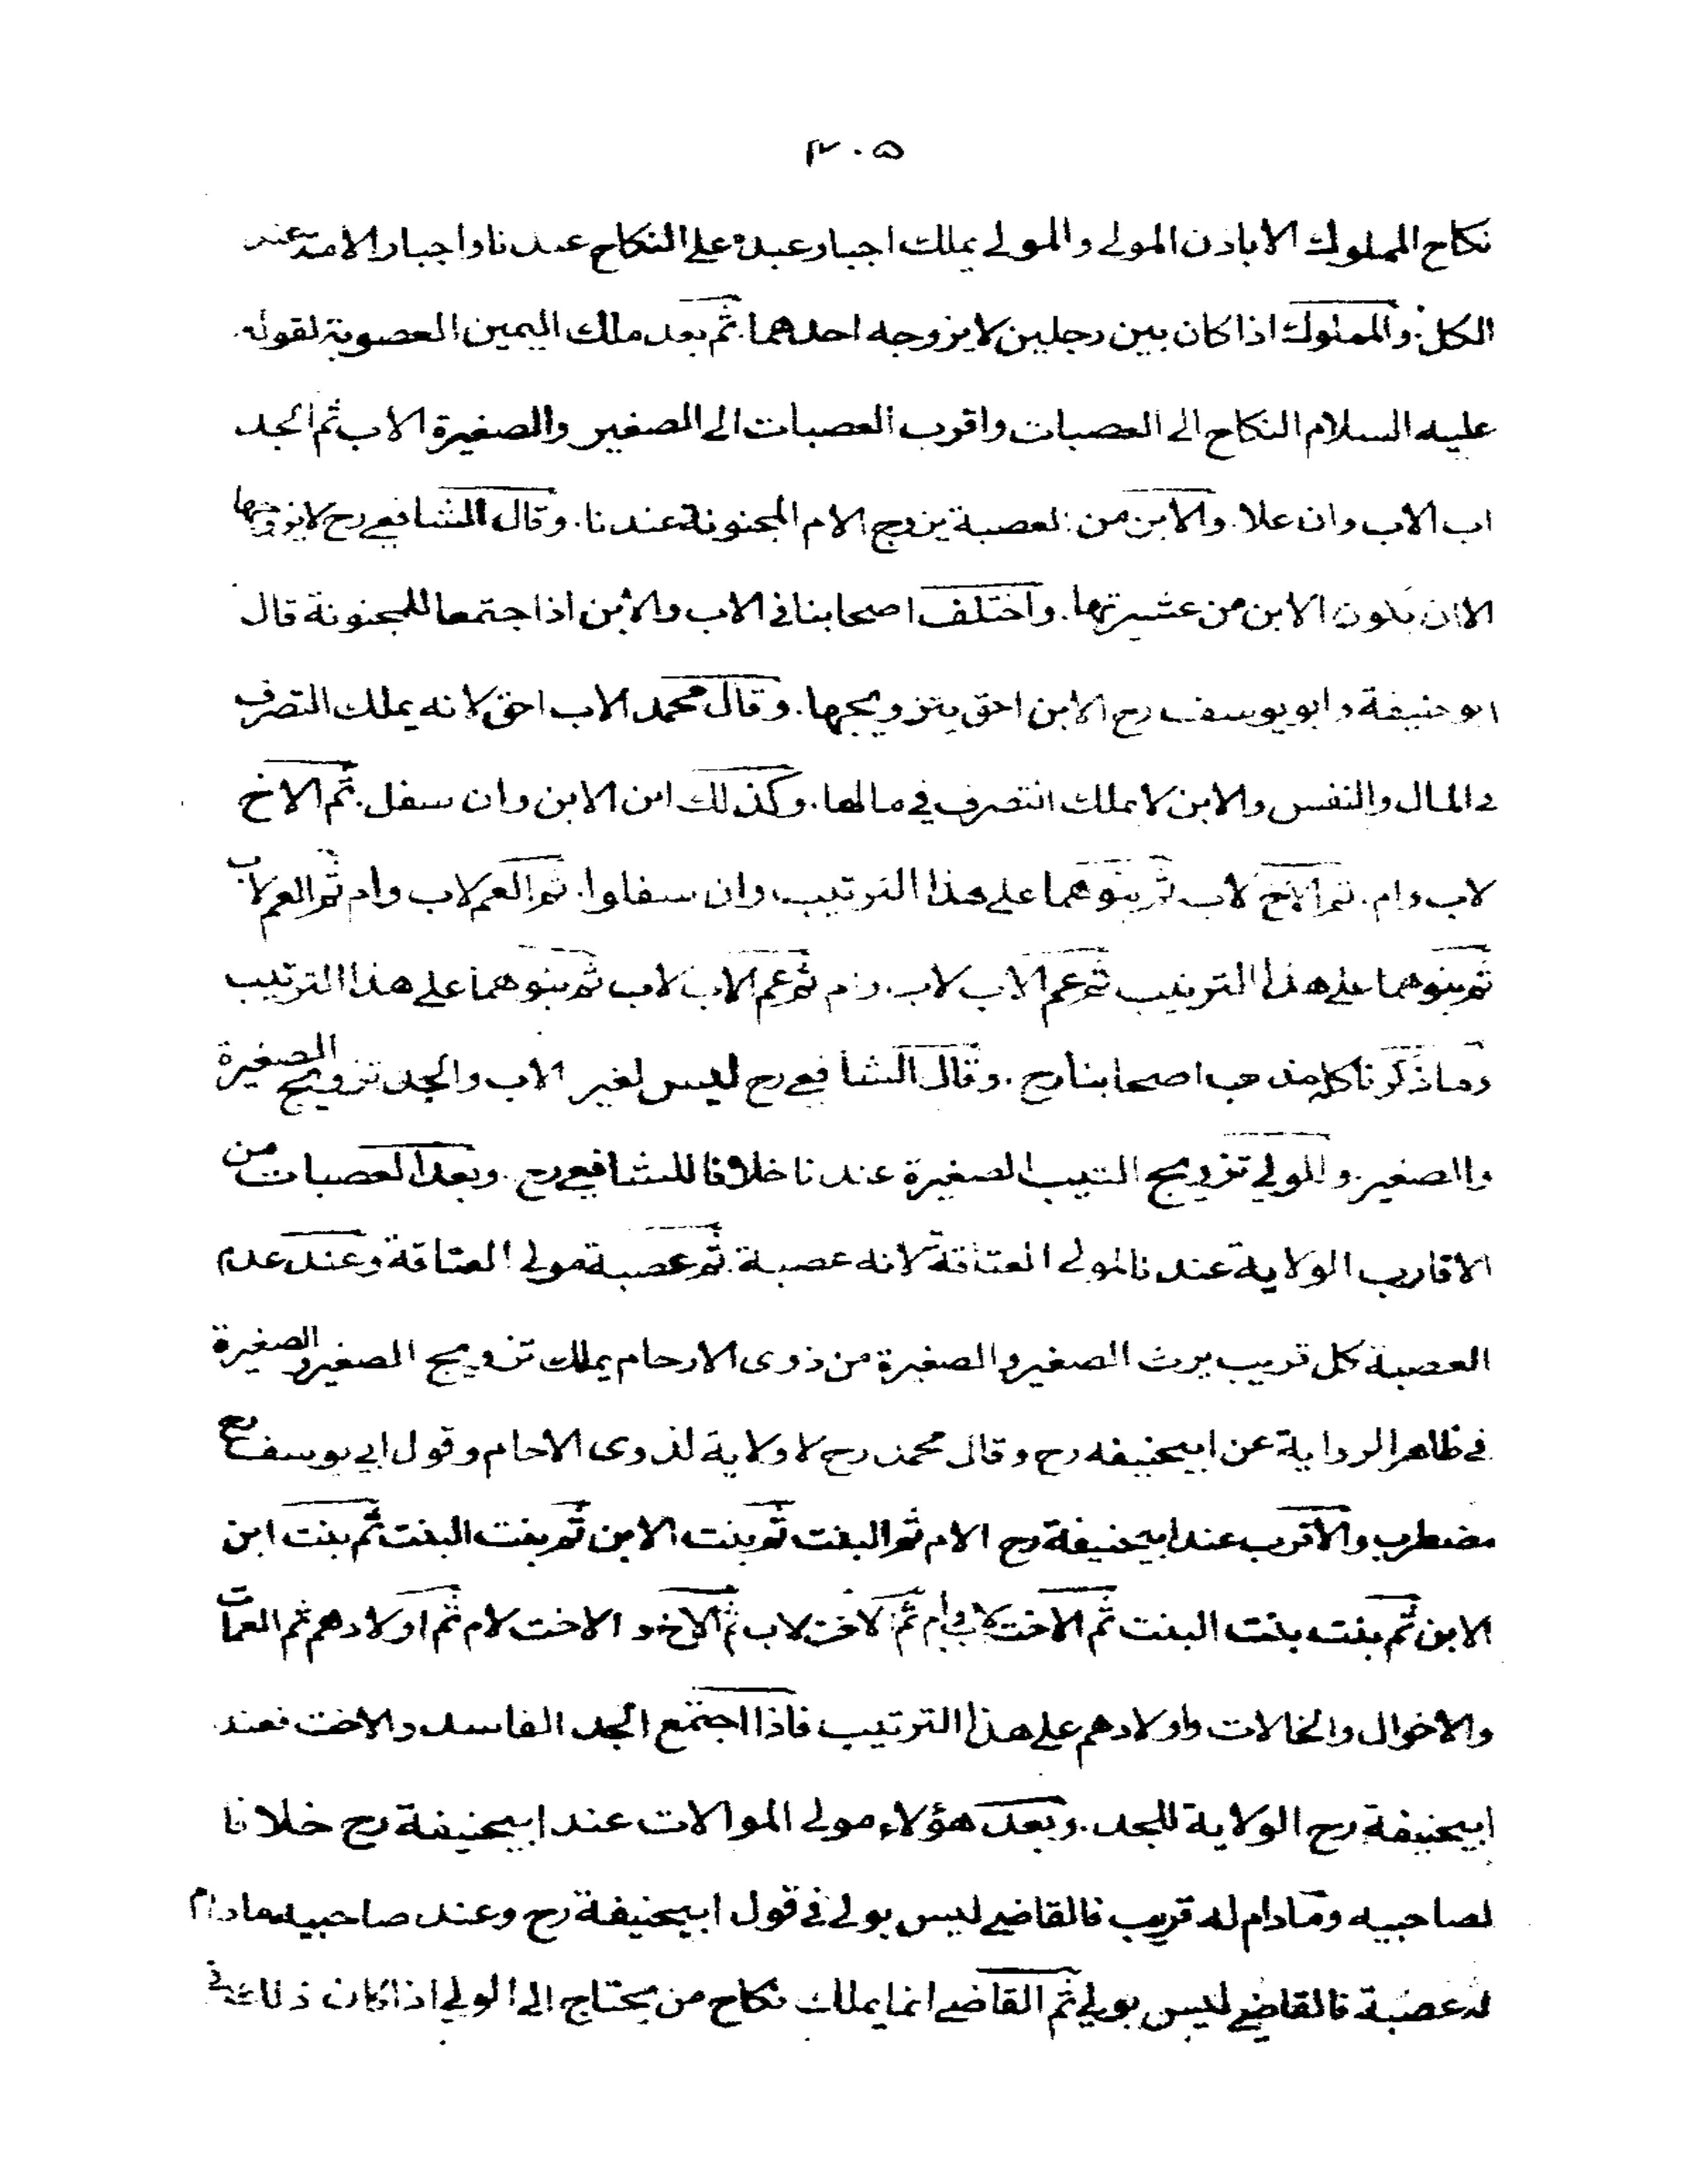 ٣٠٥
نكاح المملوك الا باذن المولى والمولى يملك اجبار عبده على النكاح عندنا واجبار الامة عند
الكل. والمملوك اذا كان بين رجلين لا يزوجه احدهما. ثم بعد ملك اليمين العصوبة لقوله
عليه السلام النكاح الى العصبات واقرب العصبات الى الصغير والصغيرة الاب ثم الجد
اب الاب وان علا. والابن من العصبة يزوج الام المجنونة عندنا. وقال الشافعي رح لا يزوجها
الا ان يكون الابن من عشيرتها. واختلف اصحابنا في الاب والابن اذا اجتمعا للمجنونة قال
ابو حنيفة وابو يوسف رح الابن احق بتزويجها. وقال محمد الاب احق لانه يملك التصرف
في المال والنفس والابن لا يملك التصرف في مالها. وكذلك ابن الابن وان سفل. ثم الاخ
لاب وام. ثم الاخ لاب ثم بنوهما على هذا الترتيب وان سفلوا. ثم العم لاب وام ثم العم لاب
ثم بنوهما على هذا الترتيب ثم عم الاب لاب وام ثم عم الاب لاب ثم بنوهما على هذا الترتيب
وما ذكرنا كله مذهب اصحابنا رح. وقال الشافعي رح ليس لغير الاب والجد تزويج الصغيرة
والصغير. وللولي تزويج الثيب الصغيرة عندنا خلافا للشافعي رح. وبعد العصبات من
الاقارب الولاية عندنا لمولى العتاقة لانه عصبة ثم عصبة مولى العتاقة وعند عدم
العصبة كل قريب يرث الصغير والصغيرة من ذوى الارحام يملك تزويج الصغير والصغيرة
في ظاهر الرواية عن ابيحنيفه رح وقال محمد رح لا ولاية لذوى الاحام وقول ابي يوسف رح
مضطرب والاقرب عند ابيحنيفة رح الام ثم البنت ثم بنت الابن ثم بنت البنت ثم بنت ابن
الابن ثم بنت بنت البنت ثم الاخت لاب وام ثم الاخت لاب ثم الاخ و الاخت لام ثم اولادهم ثم العمات
والاخوال والخالات واولادهم على هذا الترتيب فاذا اجتمع الجد الفاسد والاخت فعند
ابيحنيفة رح الولاية للجد. وبعد هؤلاء مولى الموالات عند ابيحنيفة رح خلافا
لصاحبيه وما دام له قريب فالقاضي ليس بولي في قول ابيحنيفة رح وعند صاحبيه مادام
له عصبة فالقاضي ليس بولي ثم القاضي انما يملك نكاح من يحتاج الى الولي اذا كان ذلك في